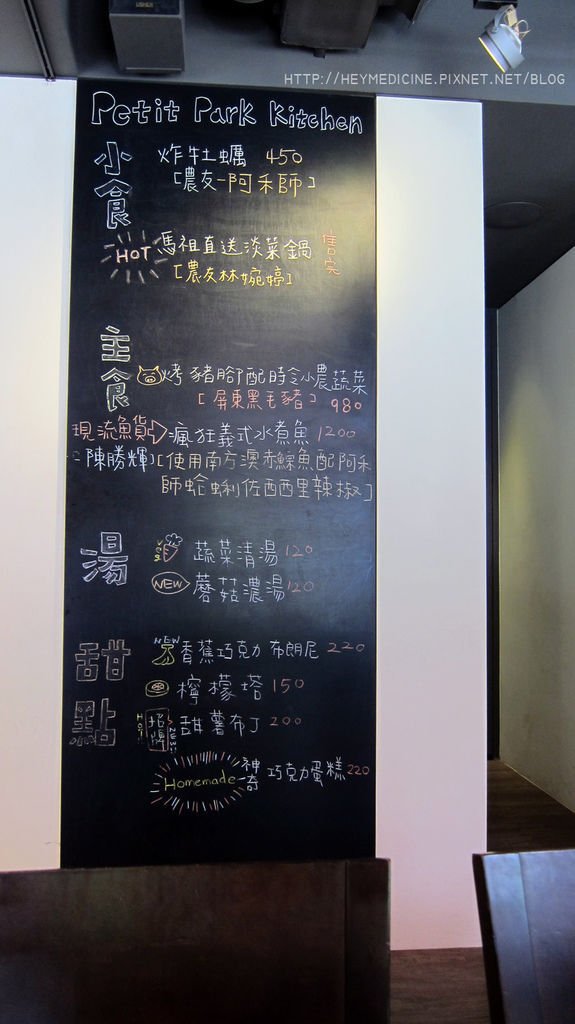 HTTP://HEYMEDICINE.PIXNET.NET/BLOG
Petit Park Kitchen
小食
炸牡蠣 450
[農友-阿禾師]
HOT 馬祖直送淡菜鍋 售完
[農友林婉婷]
主食
烤豬腳配時令小農蔬菜
[屏東黑毛豬] 980
現流魚貨 瘋狂義式水煮魚 1200
陳勝輝 [使用南方澳赤鯮魚配阿禾
師蛤蜊佐西西里辣椒]
湯
蔬菜清湯 120
NEW 蘑菇濃湯 120
甜點
NEW 香蕉巧克力布朗尼 220
檸檬塔 150
HOT 招牌 甜薯布丁 200
Homemade 神奇巧克力蛋糕 220